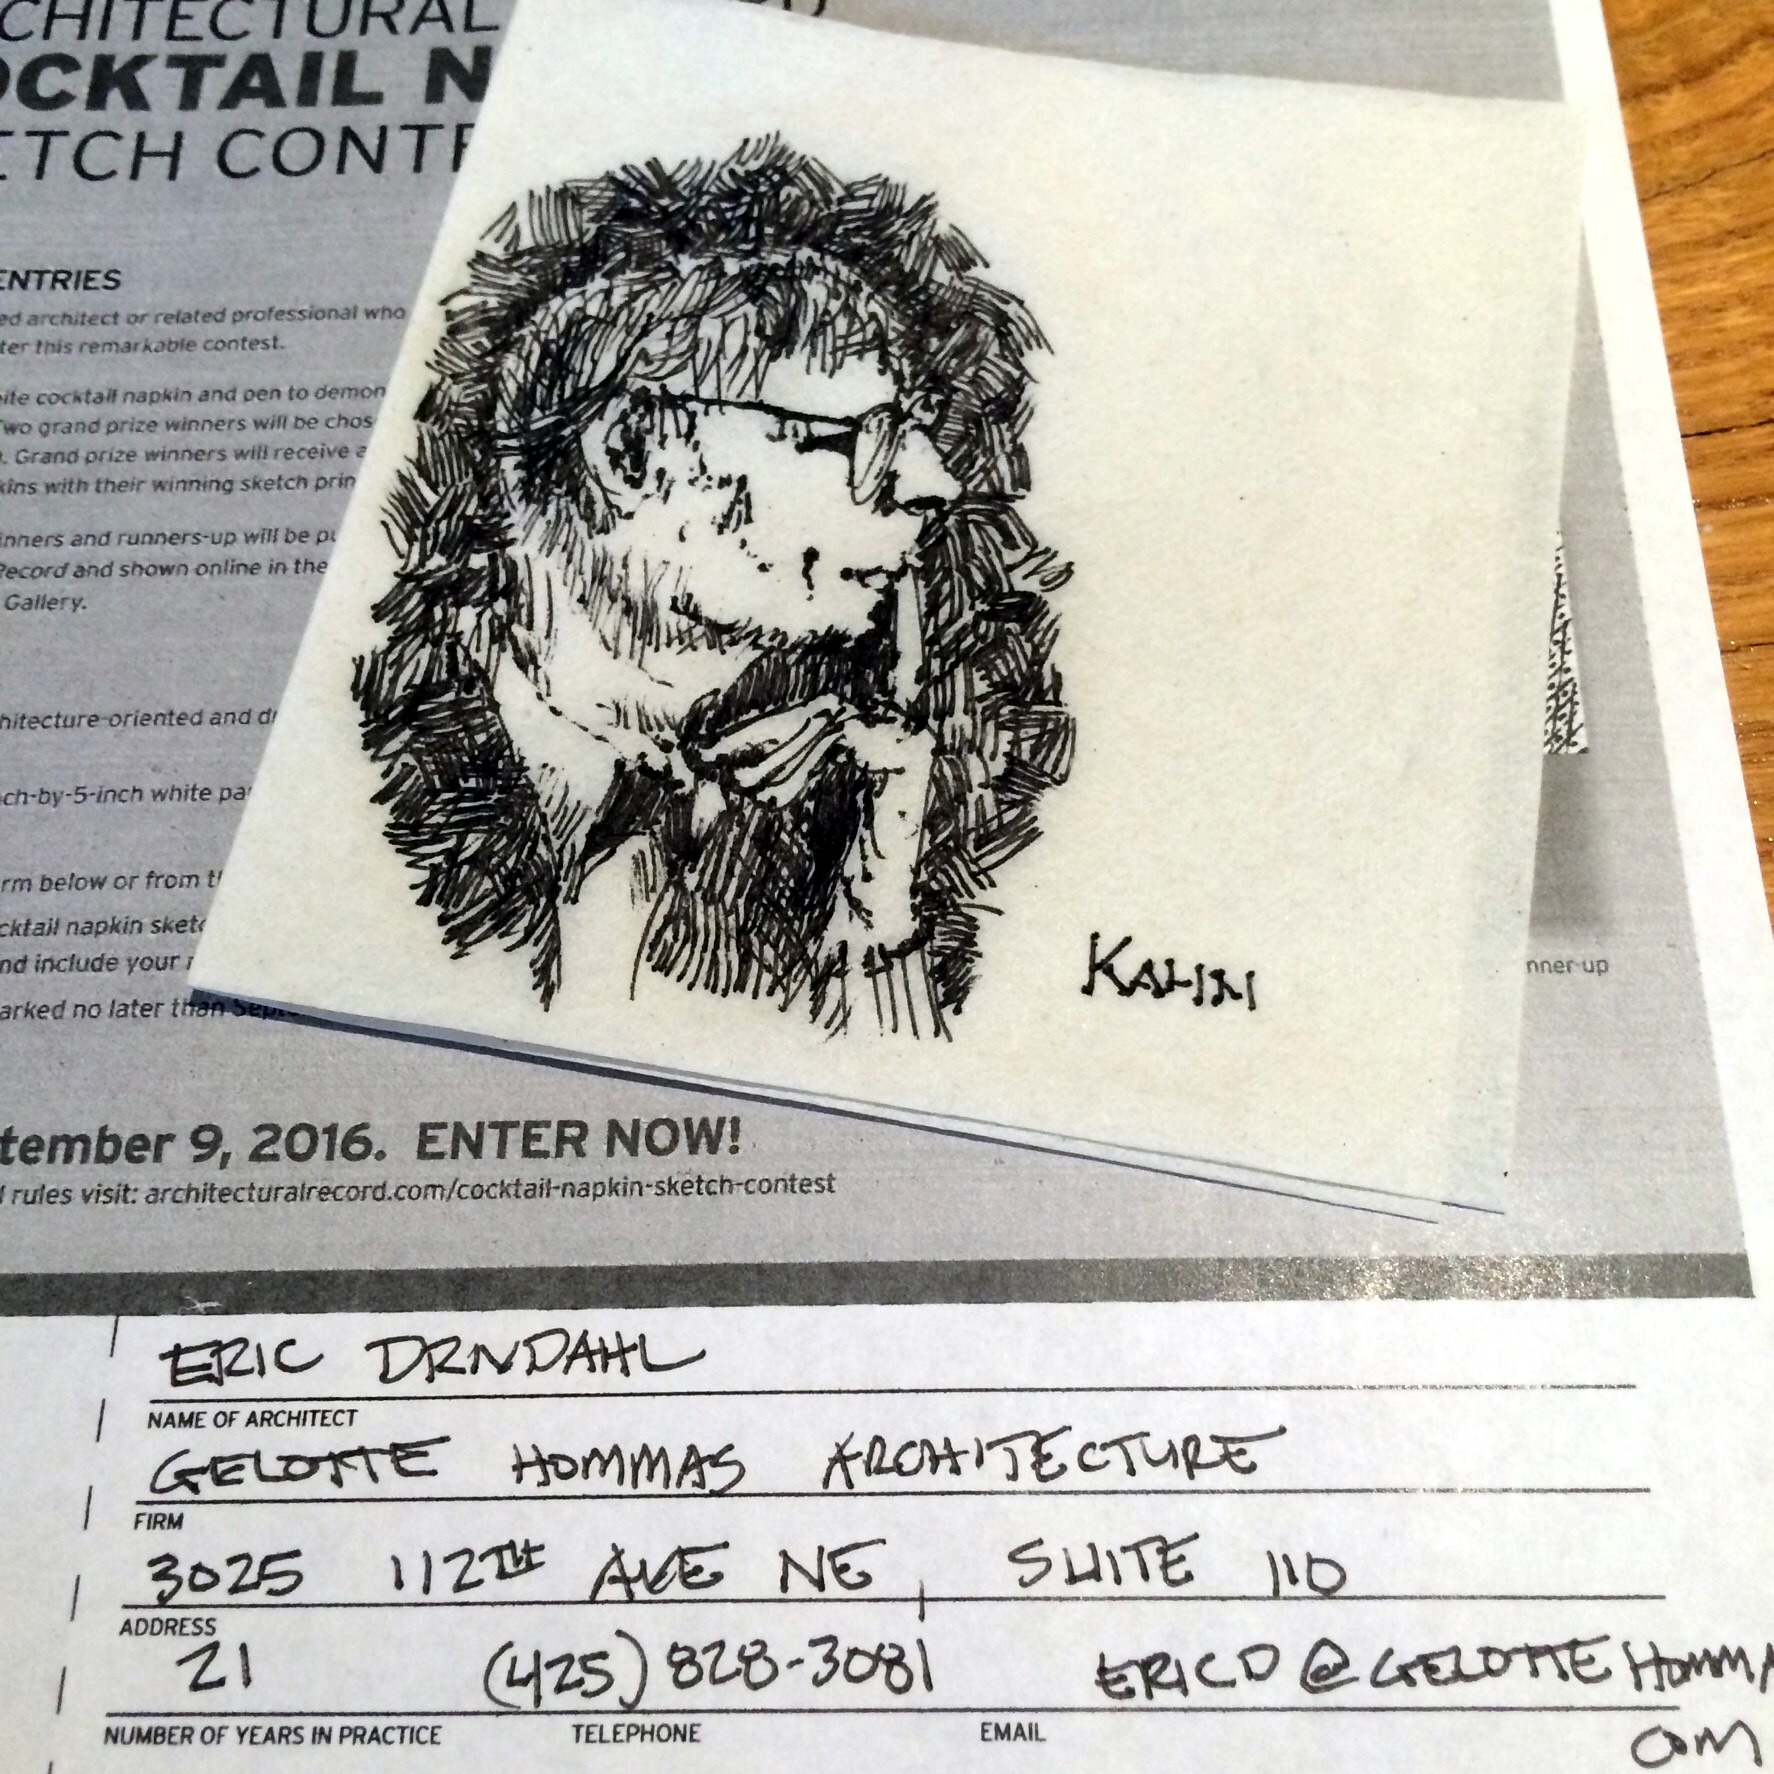 CHITECTURAL
OCKTAIL N
ETCH CONTE
ENTRIES
ed architect or related professional who
ter this remarkable contest.
ite cocktail napkin and pen to demon
Two grand prize winners will be chos
. Grand prize winners will receive a
kins with their winning sketch prin
inners and runners-up will be pu
Record and shown online in the
Gallery.
hitecture-oriented and dr
ch-by-5-inch white pa
rm below or from th
cktail napkin sketc
nd include your
arked no later than Septe
KAHN
nner-up
tember 9, 2016. ENTER NOW!
l rules visit: architecturalrecord.com/cocktail-napkin-sketch-contest
ERIC DRNDAHL
NAME OF ARCHITECT
GELOTTE HOMMAS ARCHITECTURE
FIRM
3025 112TH AVE NE, SUITE 110
ADDRESS
21 (425) 828-3081 ERICD@GELOTTEHOMMA
NUMBER OF YEARS IN PRACTICE TELEPHONE EMAIL
COM